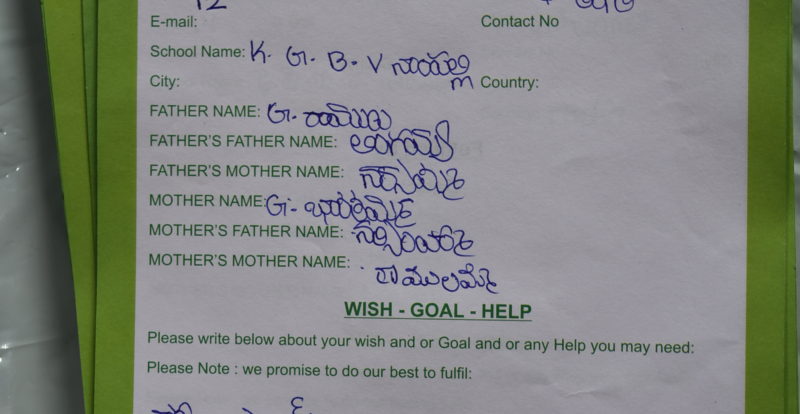 12
E-mail:
Contact No
School Name: K. G. B. V
City:
Country:
FATHER NAME: G. రాములు
FATHER'S FATHER NAME:
FATHER'S MOTHER NAME:
MOTHER NAME: G.
MOTHER'S FATHER NAME:
MOTHER'S MOTHER NAME: రాములమ్మ
WISH - GOAL - HELP
Please write below about your wish and or Goal and or any Help you may need:
Please Note : we promise to do our best to fulfil: